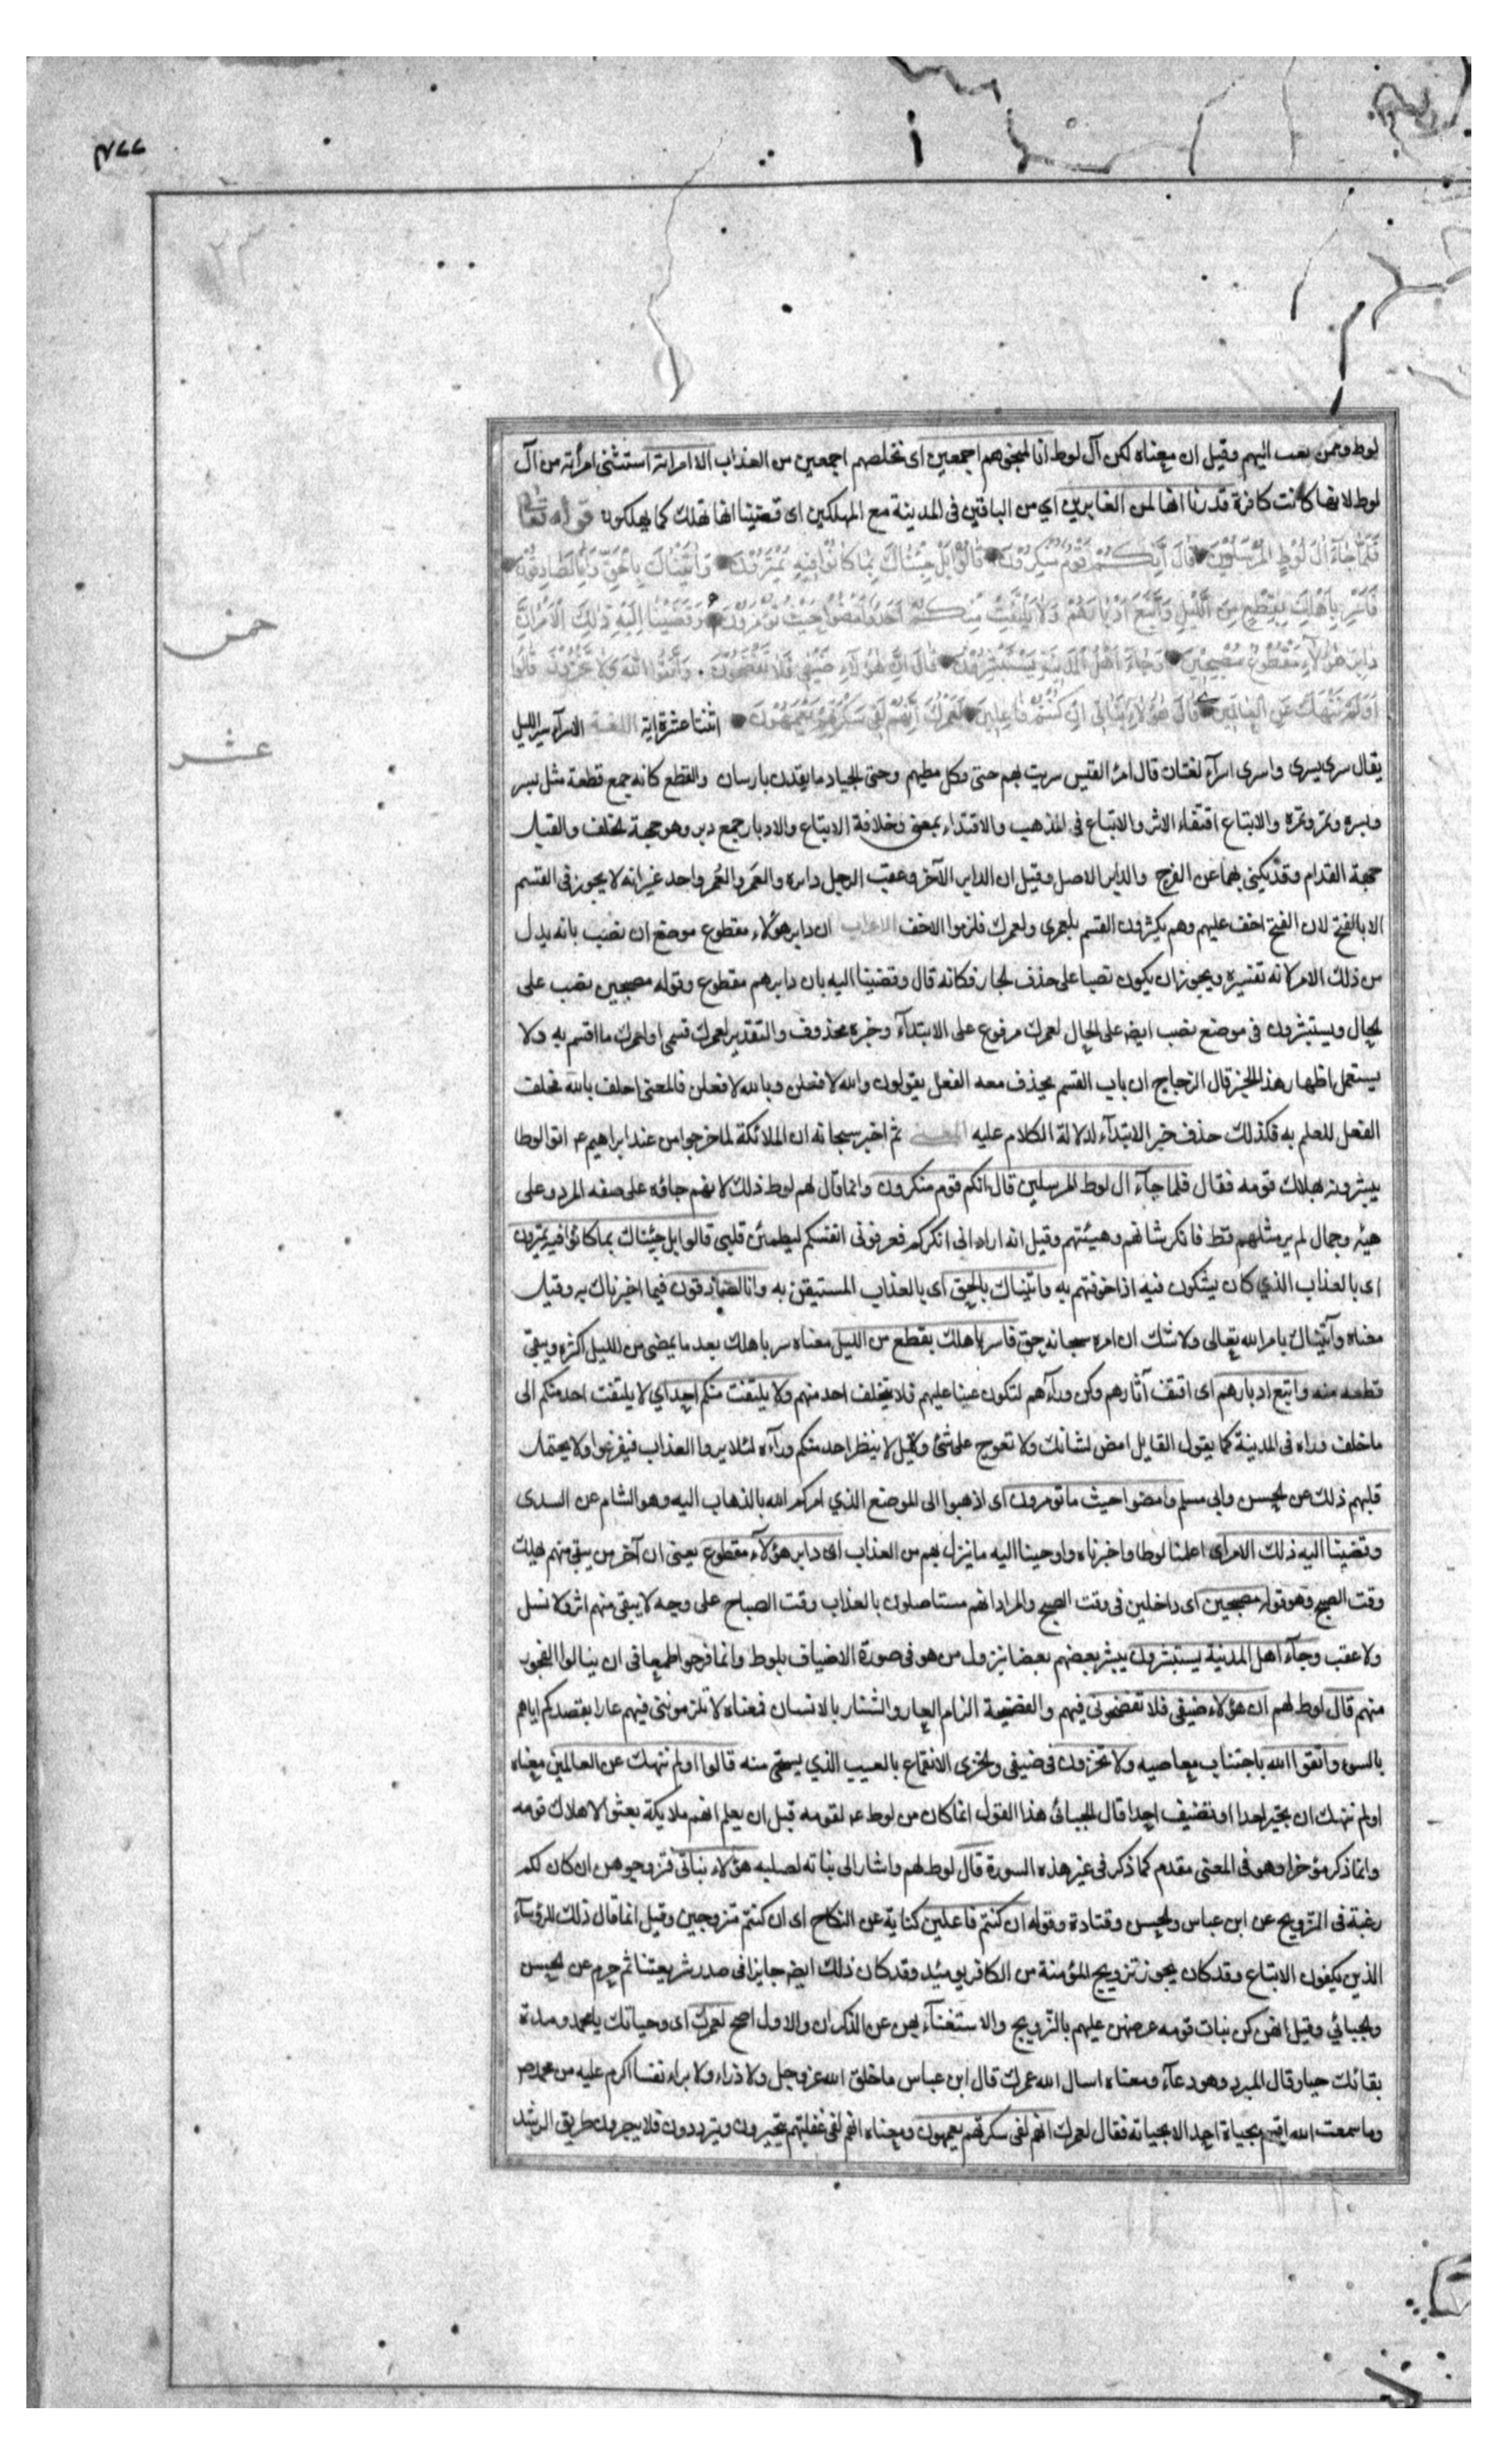 ٣٧٧
لوط وممن بعث اليهم وقيل ان معناه لكن آل لوط انا لمنجوهم اجمعين اى نخلصهم اجمعين من العذاب الا امراته استثنى امرأته من آل
لوط لانها كانت كافرة قدرنا انها لمن الغابرين اي من الباقين فى المدينة مع المهلكين اى قضينا انها تهلك كما يهلكون قوله تعالى
فَلَمَّا جَآءَ اٰلَ لُوطٍ الْمُرْسَلُوْنَ قَالَ اِنَّكُمْ قَوْمٌ مُنْكَرُوْنَ قَالُوْا بَلْ جِئْنَاكَ بِمَا كَانُوْا فِيْهِ يَمْتَرُوْنَ وَاَتَيْنَاكَ بِالْحَقِّ وَاِنَّا لَصَادِقُوْنَ
فَاَسْرِ بِاَهْلِكَ بِقِطْعٍ مِنَ اللَّيْلِ وَاتَّبِعْ اَدْبَارَهُمْ وَلَا يَلْتَفِتْ مِنْكُمْ اَحَدٌ وَامْضُوْا حَيْثُ تُؤْمَرُوْنَ وَقَضَيْنَا اِلَيْهِ ذٰلِكَ الْاَمْرَ اَنَّ
دَابِرَ هٰؤُلَاۤءِ مَقْطُوْعٌ مُصْبِحِيْنَ وَجَآءَ اَهْلُ الْمَدِيْنَةِ يَسْتَبْشِرُوْنَ قَالَ اِنَّ هٰؤُلَاۤءِ ضَيْفِى فَلَا تَفْضَحُوْنِ وَاتَّقُوا اللّٰهَ وَلَا تُخْزُوْنِ قَالُوْا
اَوَلَمْ نَنْهَكَ عَنِ الْعَالَمِيْنَ قَالَ هٰؤُلَاۤءِ بَنَاتِى اِنْ كُنْتُمْ فَاعِلِيْنَ لَعَمْرُكَ اِنَّهُمْ لَفِى سَكْرَتِهِمْ يَعْمَهُوْنَ اثنتا عشرة اية اللغة الاسرآء سير الليل
خمس
عشر
يقال سرى يسرى واسرى اسرآء لغتان قال امرؤ القيس سريت بهم حتى تكل مطيهم وحتى الجياد ما يقدن بارسان والقطع كانه جمع قطعة مثل بسر
وبسره وتمر وتمره والاتباع اقتفاء الاثر والاتباع فى المذهب والاقتداء بمعنى وخلافة الابتداع والادبار جمع دبر وهو جهة الخلف والقبل
جهة القدام وقد يكنى بهما عن الفرج والدابر الاصل وقيل ان الدابر الآخر وعقب الرجل دابره والعَمر والعُمر واحد غير انه لا يجوز فى القسم
الا بالفتح لان الفتح اخف عليهم وهم يكثرون القسم بلعمرى ولعمرك فلزموا الاخف الاعراب ان دابر هؤلاء مقطوع موضع ان نصب بانه بدل
من ذلك الامر لانه تفسيره ويجوز ان يكون نصبا على حذف الجار فكانه قال وقضينا اليه بان دابرهم مقطوع وقوله مصبحين نصب على
الحال ويستبشرون فى موضع نصب ايضا على الحال لعمرك مرفوع على الابتدآء وخبره محذوف والتقدير لعمرك قسمى او لعمرك ما اقسم به ولا
يستعمل اظهار هذا الخبر قال الزجاج ان باب القسم يحذف معه الفعل يقولون والله لافعلن وبالله لافعلن فالمعنى احلف بالله فحذف
الفعل للعلم به فكذلك حذف خبر الابتدآء لدلالة الكلام عليه المعنى ثم اخبر سبحانه ان الملائكة لما خرجوا من عند ابراهيم ع اتوا لوطا
يبشرونه بهلاك قومه فقال فلما جآء ال لوط المرسلين قال انكم قوم منكرون وانما قال لهم لوط ذلك لانهم جاؤه على صفه المرد وعلى
هيئه وجمال لم ير مثلهم قط فانكر شانهم وهيئتهم وقيل انه اراد انى انكركم فعرفونى انفسكم ليطمئن قلبى قالوا بل جئناك بما كانوا فيه يمترون
اى بالعذاب الذي كان يشكون فيه اذا خوفتهم به واتيناك بالحق اى بالعذاب المستيقن به وانا لصادقون فيما اخبرناك به وقيل
معناه وآتيناك بامر الله تعالى ولا شك ان امره سبحانه حق فاسر باهلك بقطع من الليل معناه سر باهلك بعد ما يمضى من الليل اكثره ويبقى
قطعه منه واتبع ادبارهم اى اقتف آثارهم وكن ورآءهم لتكون عينا عليهم فلا يتخلف احد منهم ولا يلتفت منكم احد اي لا يلتفت احد منكم الى
ما خلف وراه فى المدينة كما يقول القايل امض لشانك ولا تعوج على شئ وقيل لا ينظر احد منكم ورآءه لئلا يروا العذاب فيفزعوا ولا يحتمل
قلبهم ذلك عن الحسن وابى مسلم وامضوا حيث ما تؤمرون اى اذهبوا الى الموضع الذي امركم الله بالذهاب اليه وهو الشام عن السدى
وقضينا اليه ذلك الامر اى اعلمنا لوطا واخبرناه واوحينا اليه ما ينزل بهم من العذاب ان دابر هؤلآء مقطوع يعنى ان آخر من يبقى منهم يهلك
وقت الصبح وهو قوله مصبحين اى داخلين فى وقت الصبح والمراد انهم مستاصلون بالعذاب وقت الصباح على وجه لا يبقى منهم اثر ولا نسل
ولا عقب وجآء اهل المدينة يستبشرون يبشر بعضهم بعضا بنزول من هو فى صورة الاضياف بلوط وانما فرحوا طمعا فى ان ينالوا الفجور
منهم قال لوط لهم ان هؤلاء ضيفى فلا تفضحونى فيهم والفضيحة الزام العار والشنار بالانسان فمعناه لا تلزمونى فيهم عارا بقصدكم اياهم
بالسوء واتقوا الله باجتناب معاصيه ولا تخزون فى ضيفى والخزى الانقماع بالعيب الذي يستحى منه قالوا اولم ننهك عن العالمين معناه
اولم ننهك ان تجير احدا او تضيف احدا قال الجبائى هذا القول انما كان من لوط ع لقومه قبل ان يعلم انهم ملايكة بعثوا لاهلاك قومه
وانما ذكر مؤخرا وهو فى المعنى مقدم كما ذكر فى غير هذه السورة قال لوط لهم واشار الى بناته لصلبه هؤلاء بناتى فتزوجوهن ان كان لكم
رغبة فى التزويج عن ابن عباس والحسن وقتادة وقوله ان كنتم فاعلين كناية عن النكاح اى ان كنتم متزوجين وقيل انما قال ذلك للرؤساء
الذين يكفون الاتباع وقد كان يجوز تزويج المؤمنة من الكافر يومئذ وقد كان ذلك ايضا جايزا فى صدر شريعتنا ثم حرم عن الحسن
والجبائي وقيل انهن كن بنات قومه عرضهن عليهم بالتزويج والاستغنآء بهن عن الذكران والاول اصح لعمرك اى وحياتك يا محمد ومدة
بقائك حيا وقال المبرد وهو دعآء ومعناه اسال الله عمرك قال ابن عباس ما خلق الله عز وجل ولا ذراء ولا براء نفسا اكرم عليه من محمد ص
وما سمعت الله اقسم بحياة احد الا بحياته فقال لعمرك انهم لفى سكرتهم يعمهون ومعناه انهم لفى غفلتهم يتحيرون ويترددون فلا يبصرون طريق الرشد